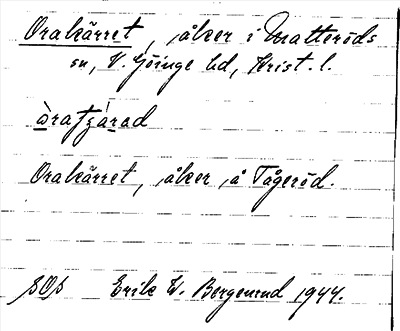 Orakärret, åker i Matteröds
sn, V. Göinge hd, Krist. l.
Orakärret, åker å Tågeröd.
SOS Erik W. Bergsund 1944.